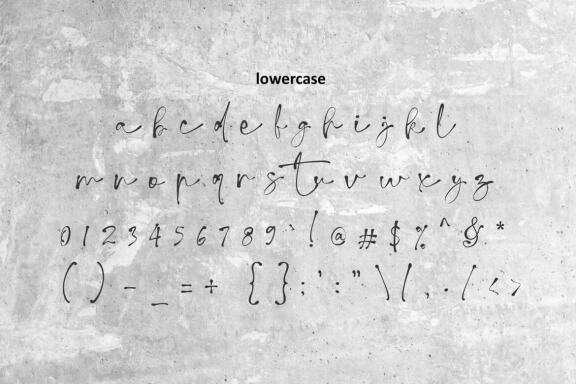 lowercase
a b c d e f g h i j k l
m n o p q r s t u v w x y z
0 1 2 3 4 5 6 7 8 9 ` ! @ # $ % ^ & *
( ) - _ = + { } ; ' : " \ | , . / < >